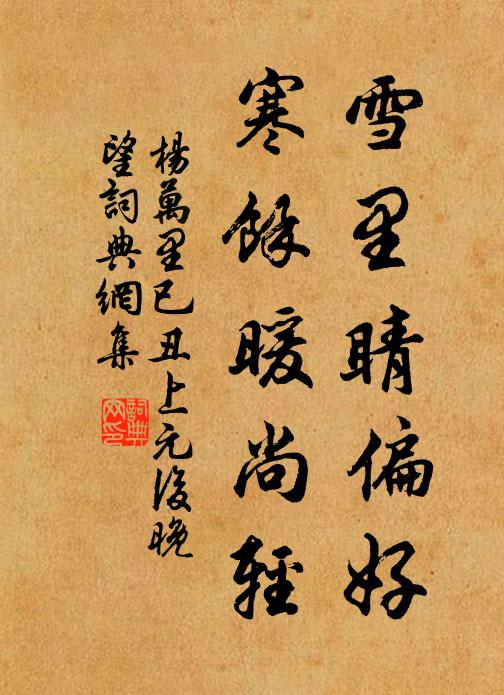 雪里晴偏好
寒餘暖尚輕
楊萬里已丑上元後晚
望詞典網集
詞典
网印